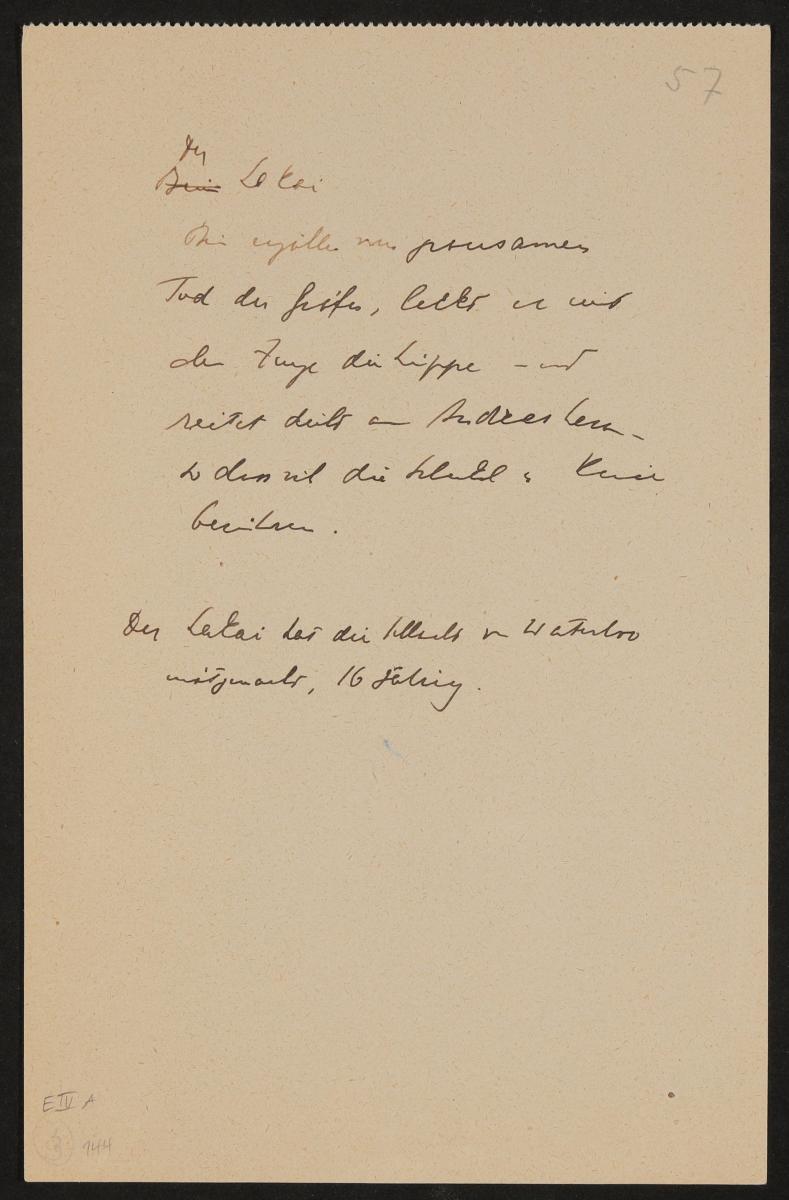 57
Der
Lakai
Beim erzählen vom grausamen
Tod des Grafen, leckt er mit
der Zunge die Lippe – und
reitet dicht an Andreas heran
so dass sich die Schenkel u Knie
berühren.
Der Lakai hat die Schlacht von Waterloo
mitgemacht, 16 jährig.
E IV A
144